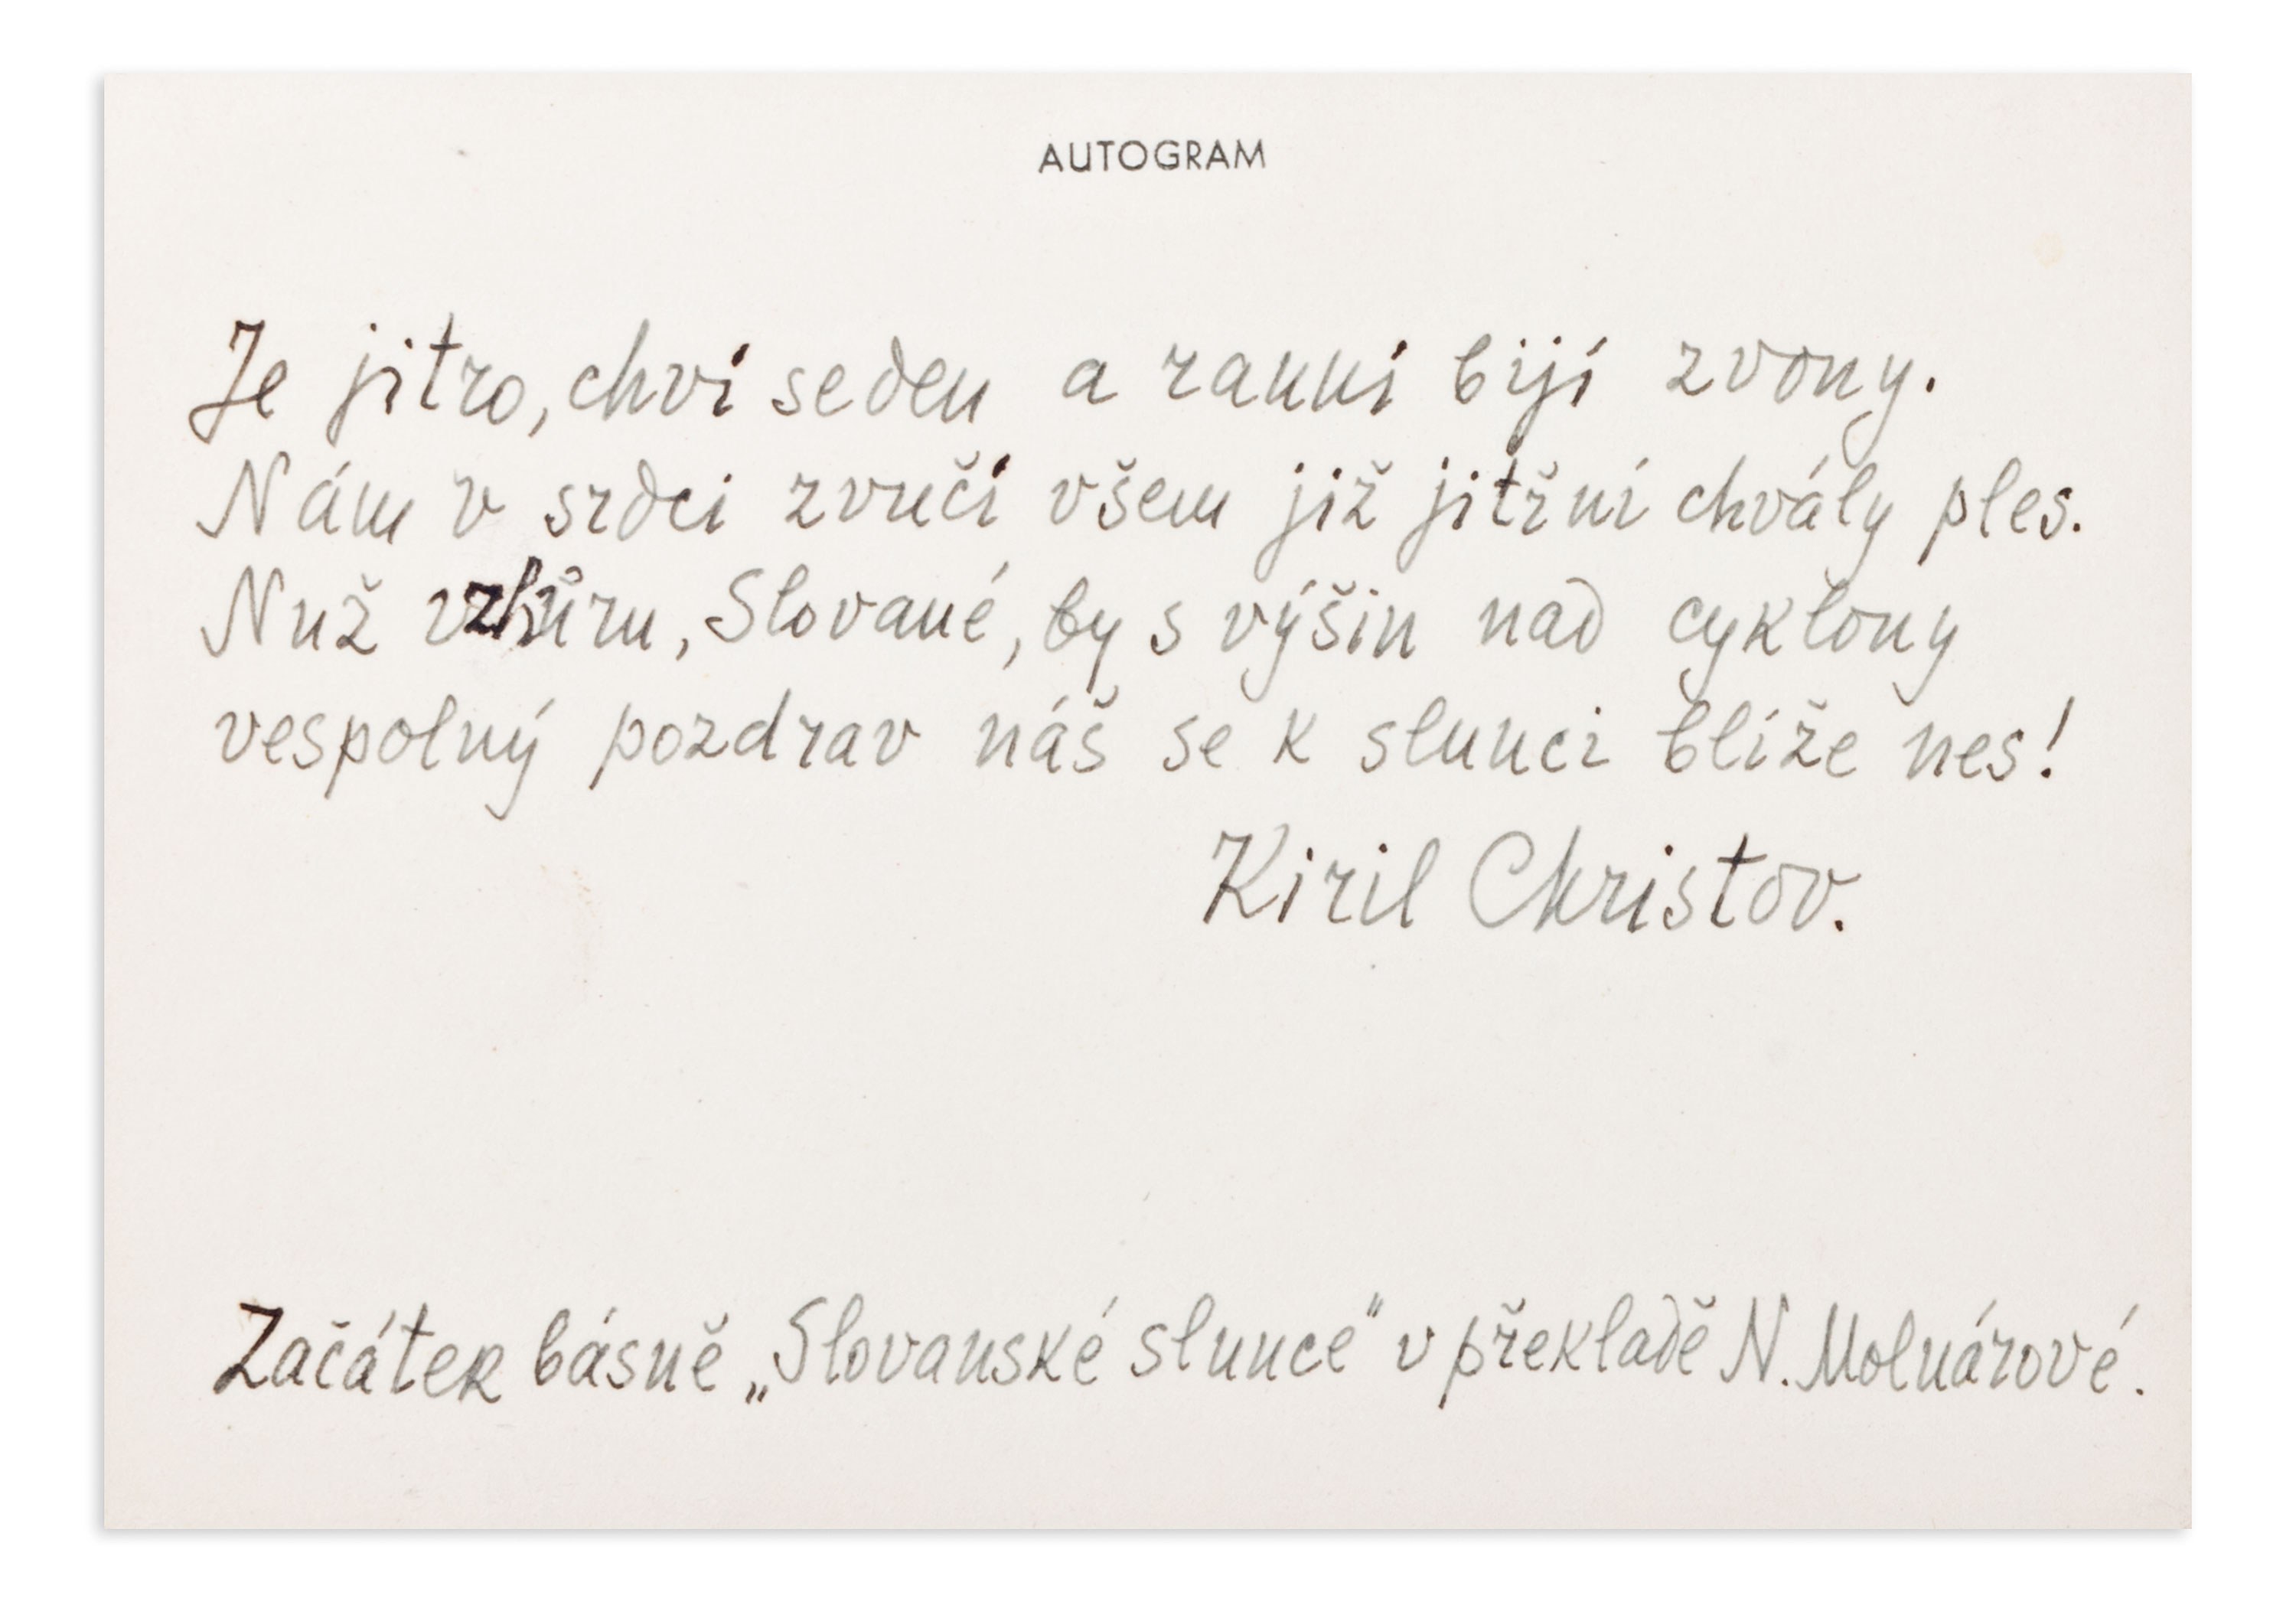 AUTOGRAM
Je jitro, chví se den a ranní bijí zvony.
Nám v srdci zvučí všem již jitřní chvály ples.
Nuž vzhůru, Slované, by s výšin nad cyklony
vespolný pozdrav náš se k slunci blíže nes!
Kiril Christov.
Začátek básně „Slovanské slunce“ v překladě N. Molnárové.